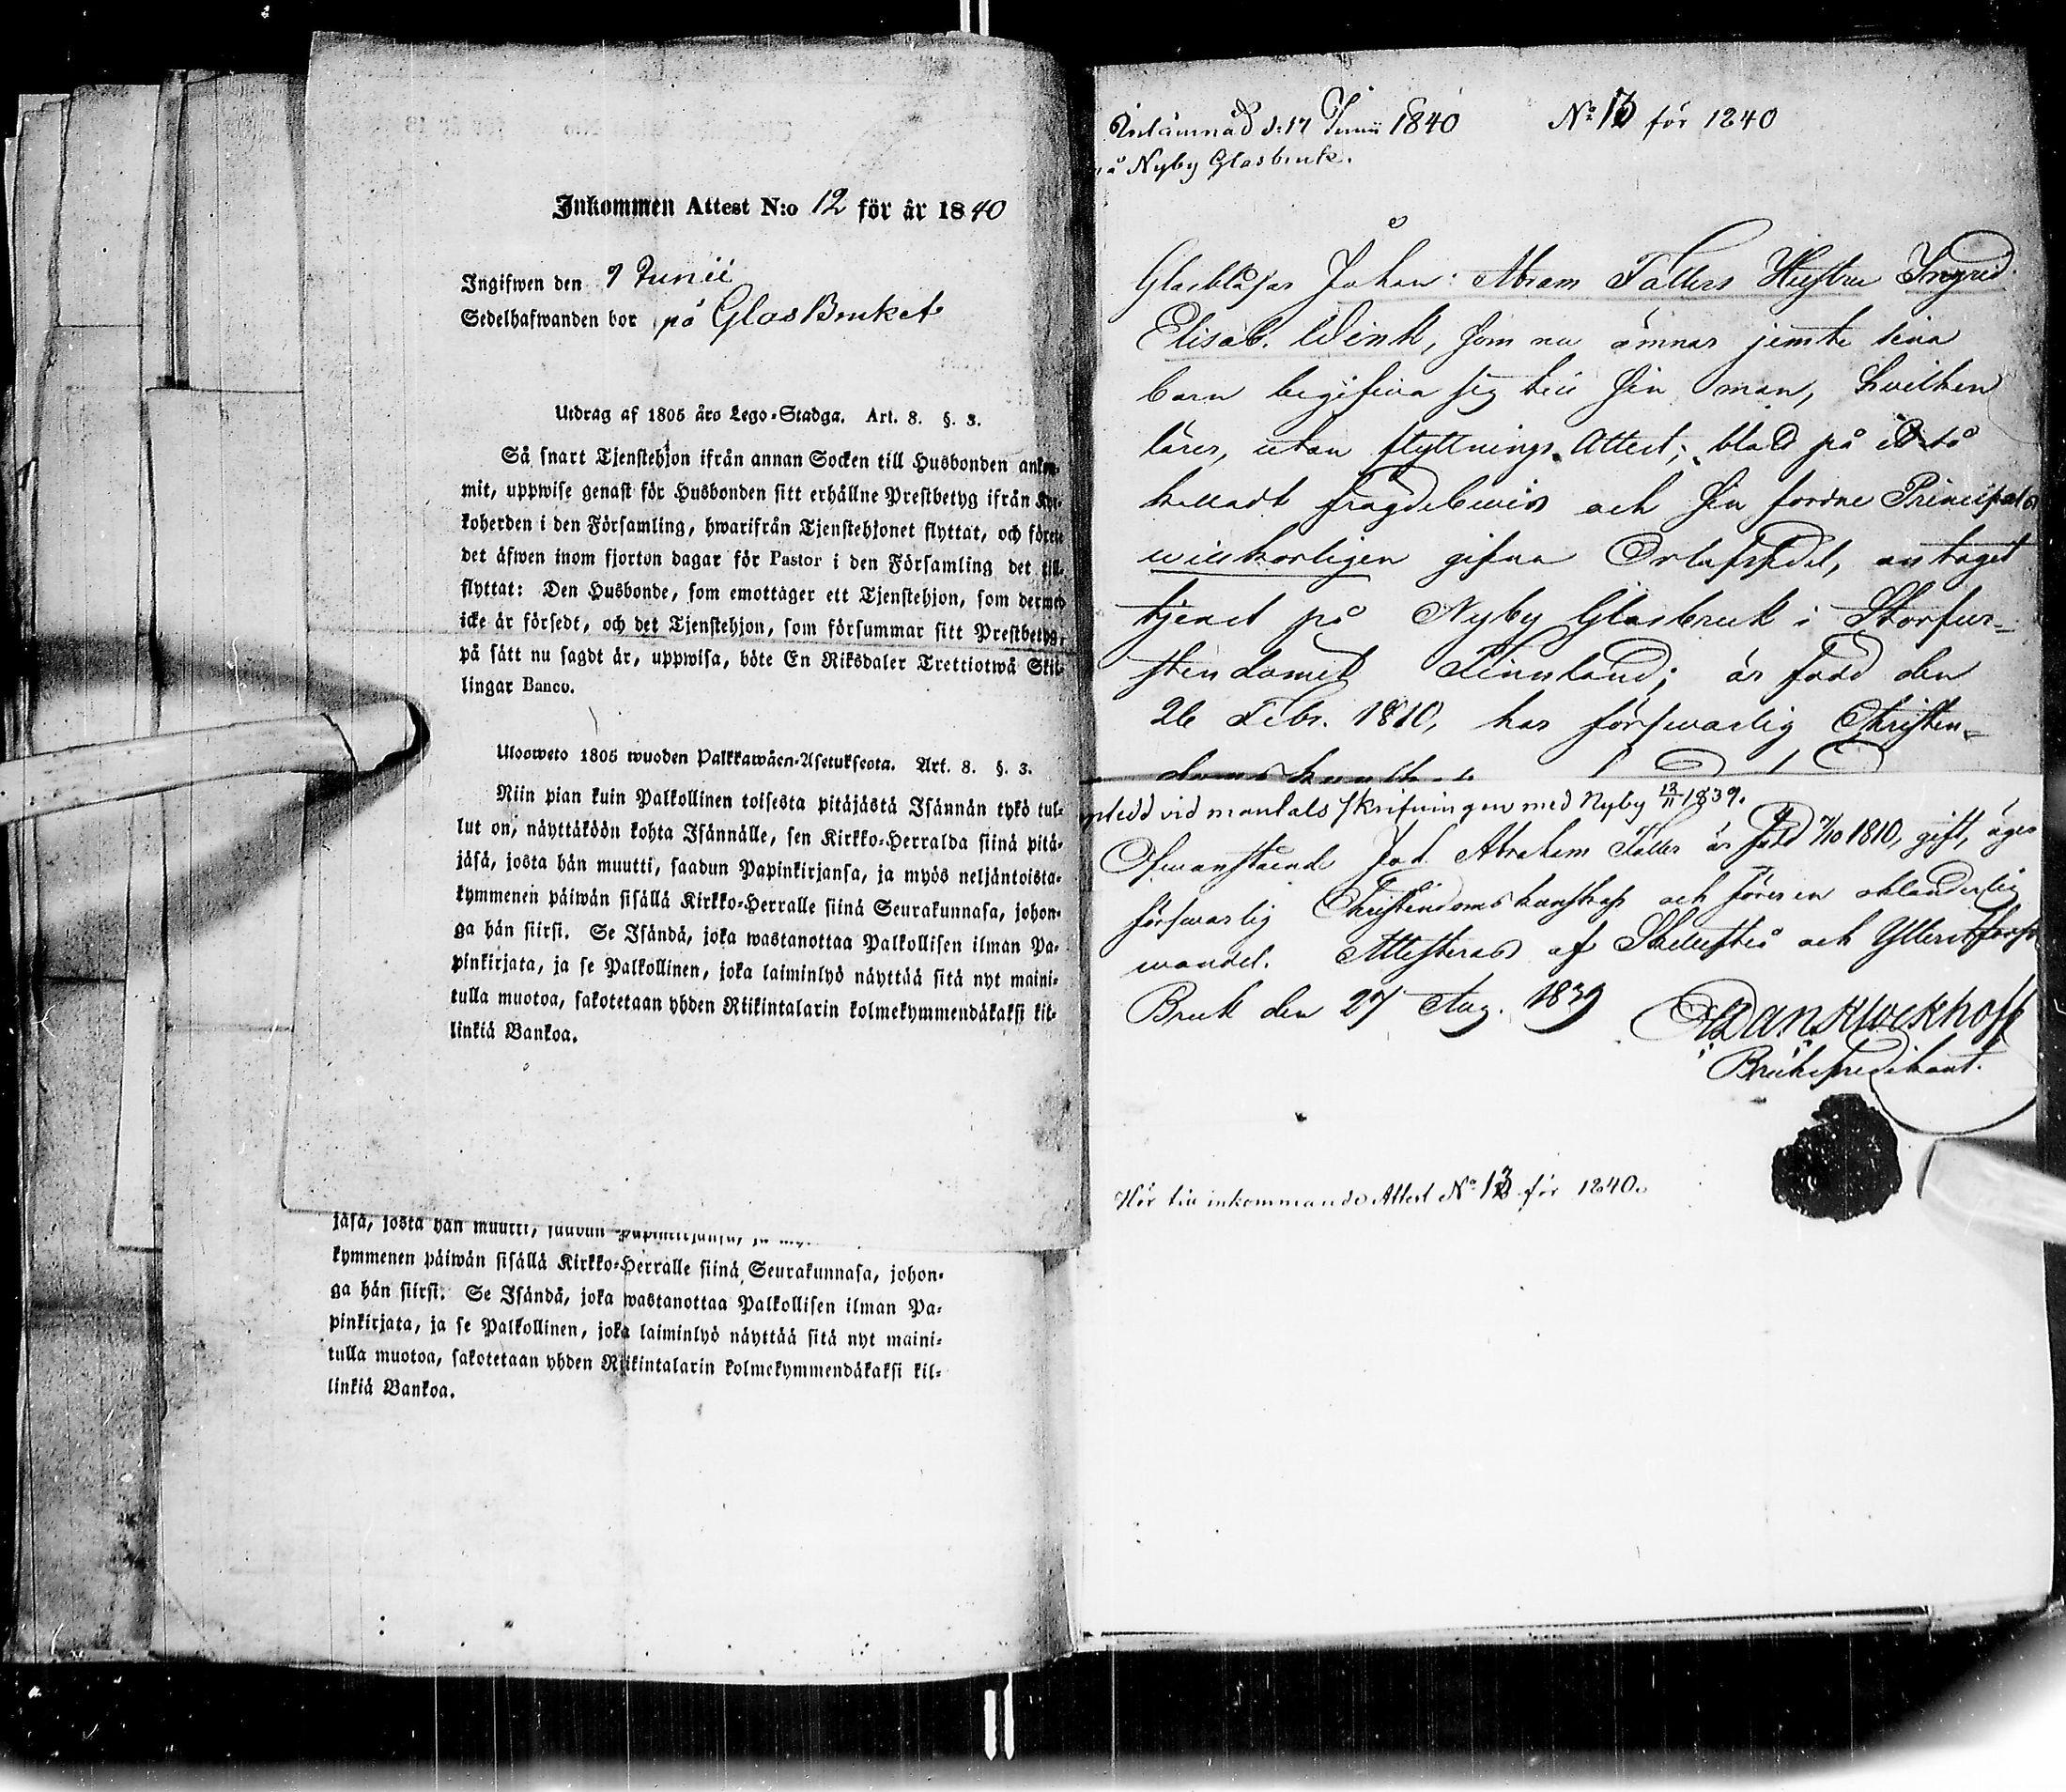 Inkommen Attest N:o 12 för år 1840
Ingifwen den 7 Junii
Sedelhafwanden bor på GlasBruket
Utdrag af 1805 års Lego-Stadga. Art. 8. §. 3.
Så snart Tjenstehjon ifrån annan Socken till Husbonden ankom-
mit, uppwise genast för Husbonden sitt erhållne Prestbetyg ifrån Kyr-
koherden i den Församling, hwarifrån Tjenstehjonet flyttat, och förete
det äfwen inom fjorton dagar för Pastor i den Församling det till-
flyttat: Den Husbonde, som emottager ett Tjenstehjon, som dermed
icke är försedt, och det Tjenstehjon, som försummar sitt Prestbetyg,
på sätt nu sagdt är, uppwisa, böte En Riksdaler Trettiotwå Skil-
lingar Banco.
Ulosweto 1805 wuoden Palkkawäen-Asetuksesta. Art. 8. §. 3.
Niin pian kuin Palkollinen toisesta pitäjästä Isännän tykö tul-
lut on, näyttäköön kohta Isännälle, sen Kirkko-Herralda siinä pitä-
jäsä, josta hän muutti, saadun Papinkirjansa, ja myös neljäntoista-
kymmenen päiwän sisällä Kirkko-Herralle siinä Seurakunnasa, johon-
ga hän siirsi. Se Isändä, joka wastanottaa Palkollisen ilman Pa-
pinkirjata, ja se Palkollinen, joka laiminlyö näyttää sitä nyt maini-
tulla muotoa, sakotetaan yhden Riikintalarin kolmekymmendäkaksi kil-
linkiä Bankoa.
jäsä, josta hän muutti, saadun Papinkirjansa, ja
kymmenen päiwän sisällä Kirkko-Herralle siinä Seurakunnasa, johon-
ga hän siirsi. Se Isändä, joka wastanottaa Palkollisen ilman Pa-
pinkirjata, ja se Palkollinen, joka laiminlyö näyttää sitä nyt maini-
tulla muotoa, sakotetaan yhden Riikintalarin kolmekymmendäkaksi kil-
linkiä Bankoa.
Inlämnad d. 17 Junii 1840 No 13 för 1840
på Nyby Glasbruk.
Glasblåsar Johan Abram Fallers Hustru Ingrid
Elisab. Wink, som nu ämnar jemte sina
barn begifva sig till sin man, hvilken
lärer, utan flyttnings Attest, blott på
frägdebevis och sin fordne Principals
willkorligen gifna Orlofssedel, antaget
tjenst på Nyby Glasbruk i Storfur-
stendömet Finnland; är född den
26 Febr. 1810, har försvarlig Christen-
domskunskap
vid mantals skrifningen med Nyby 12/11 1839.
Ofvanstående Joh. Abraham Faller är född 7/10 1810, gift, äger
försvarlig Christendomskunskap och förer en oklanderlig
wandel. Attesteras af Skellefteå och Ytterstfors
Bruk den 27 Aug. 1839
Dan Klockhoff
Brukspredikant.
Hör till inkommande Attest No 13 för 1840.